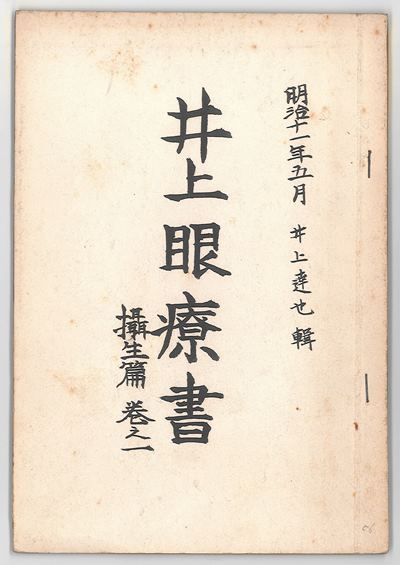 明治十一年五月 井上達也 輯
井上眼療書
攝生篇 巻之一
56